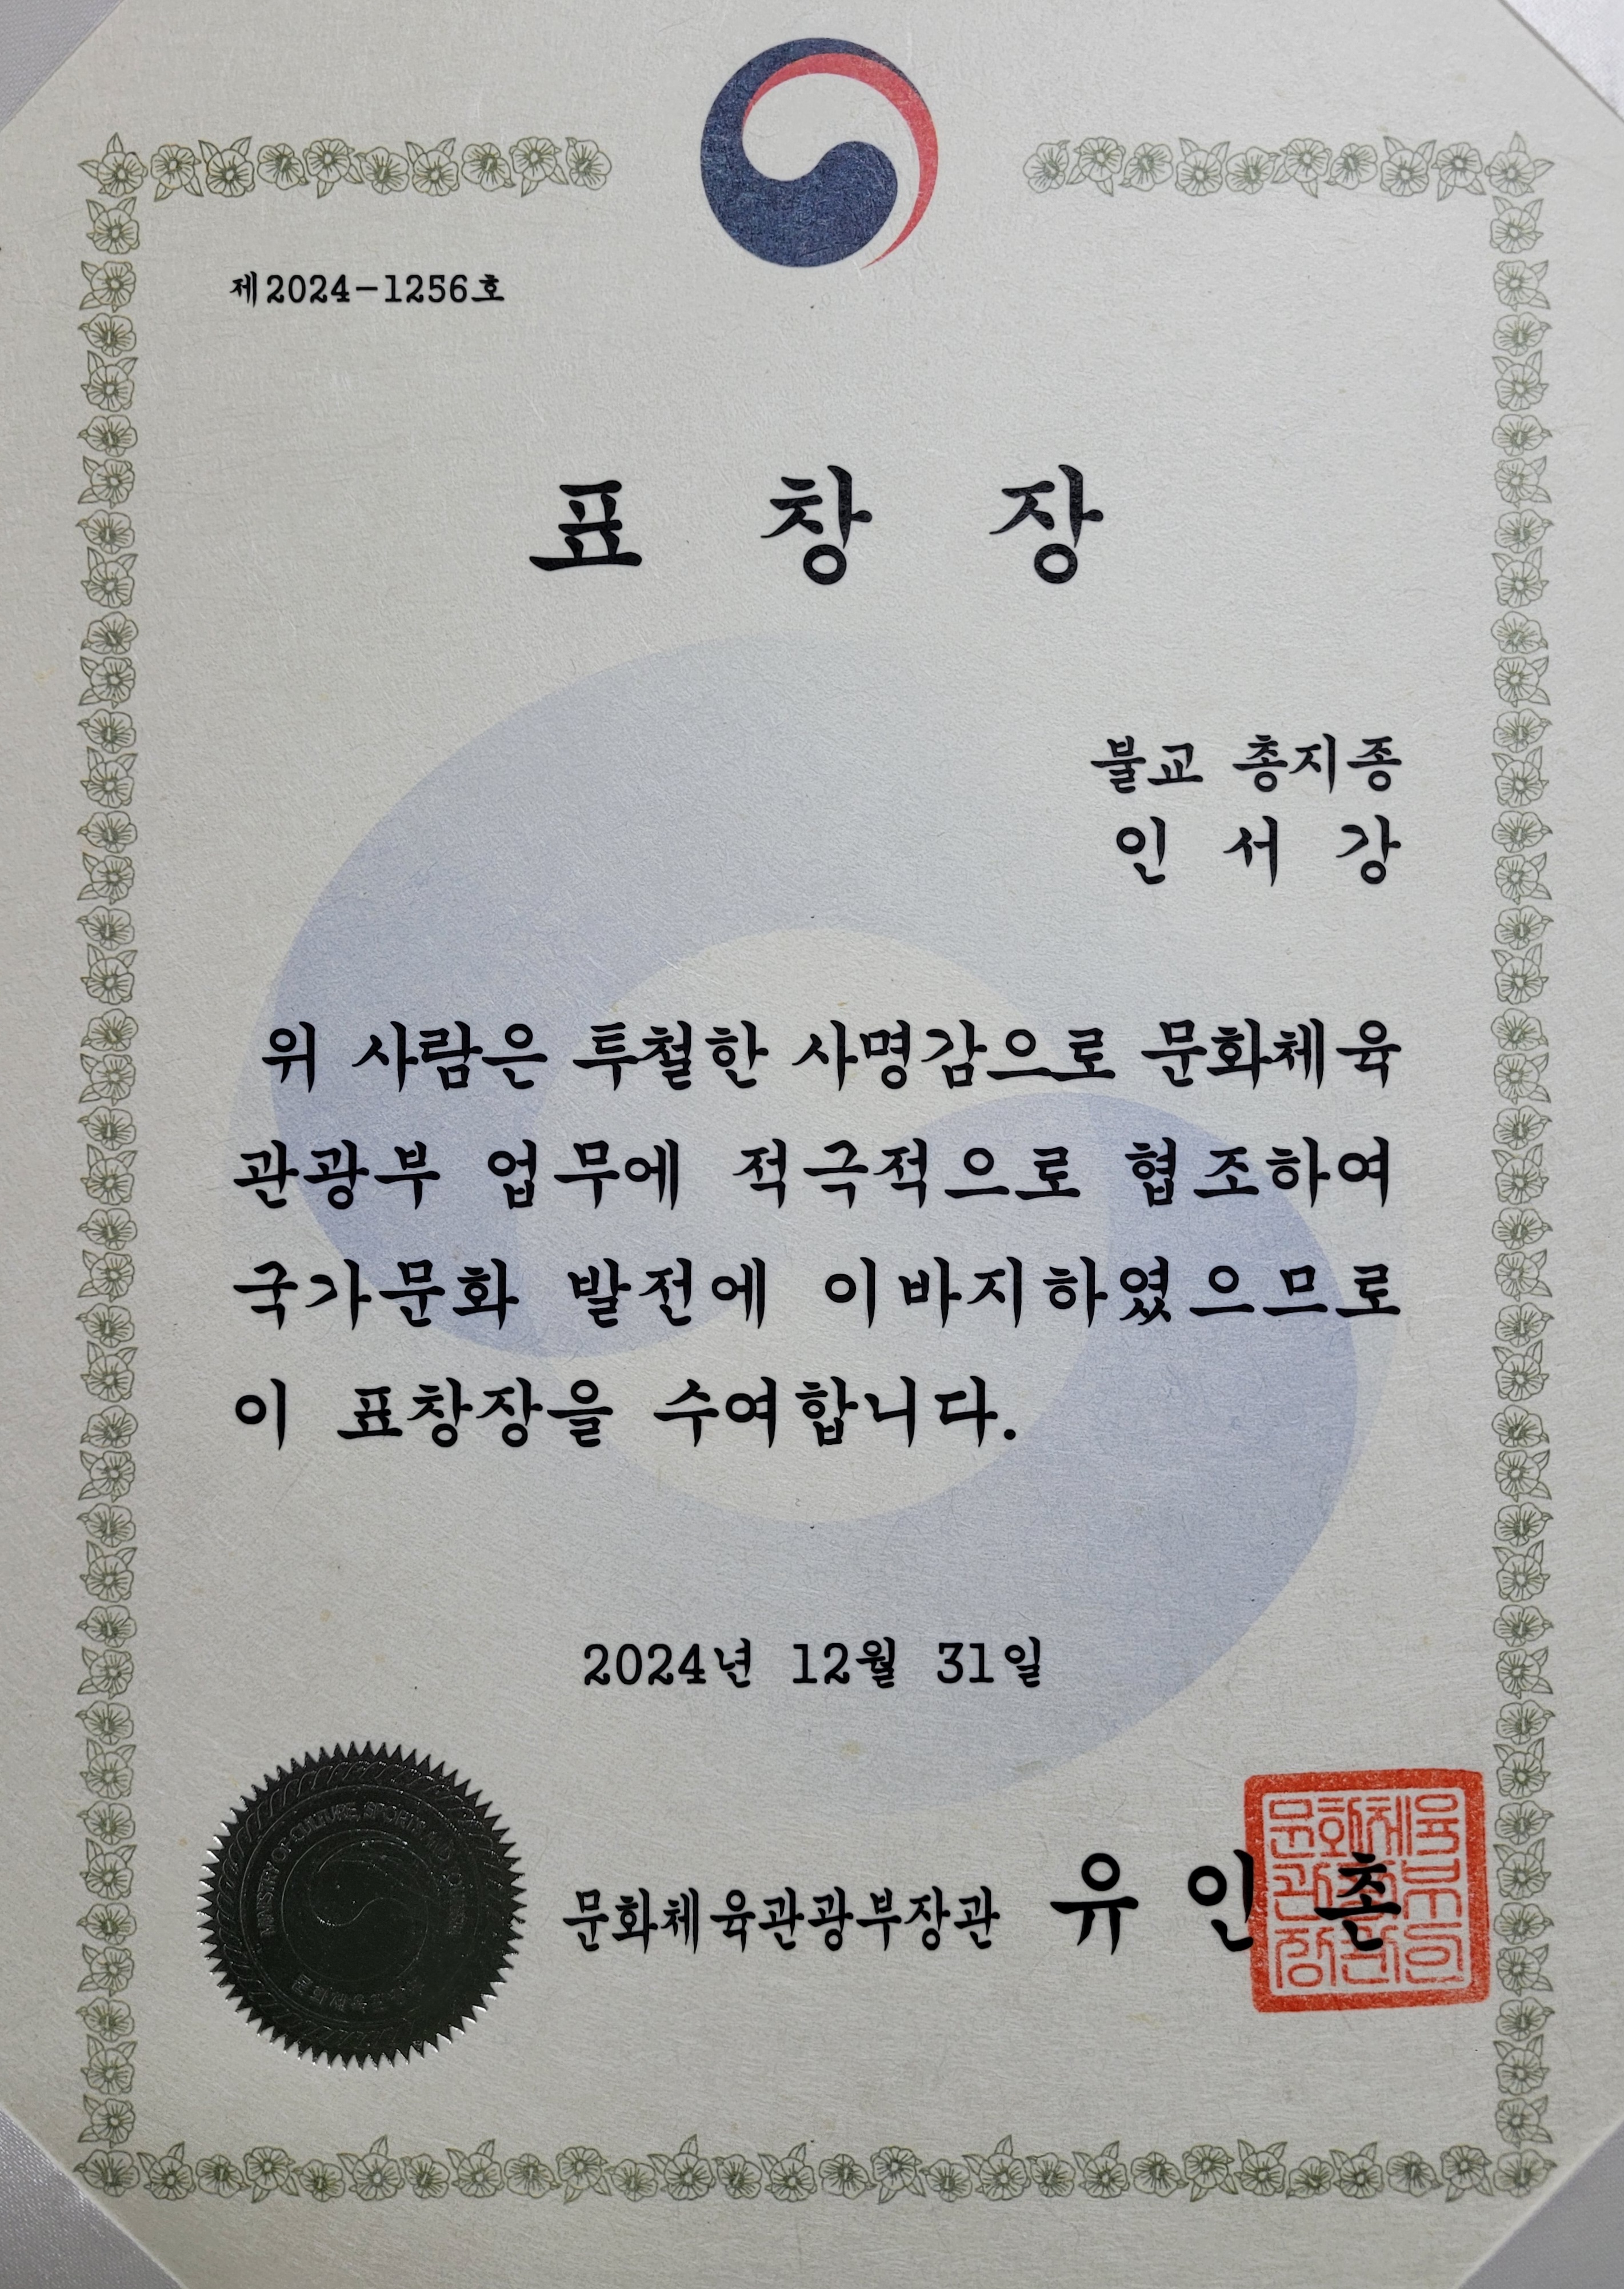 제2024-1256호
표 창 장
불교 총지종
인 서 강
위 사람은 투철한 사명감으로 문화체육
관광부 업무에 적극적으로 협조하여
국가문화 발전에 이바지하였으므로
이 표창장을 수여합니다.
2024년 12월 31일
MINISTRY OF CULTURE, SPORTS AND TOURISM
문화체육관광부
문화체육관광부장관 유 인 촌
문화체육
관광부
장관인